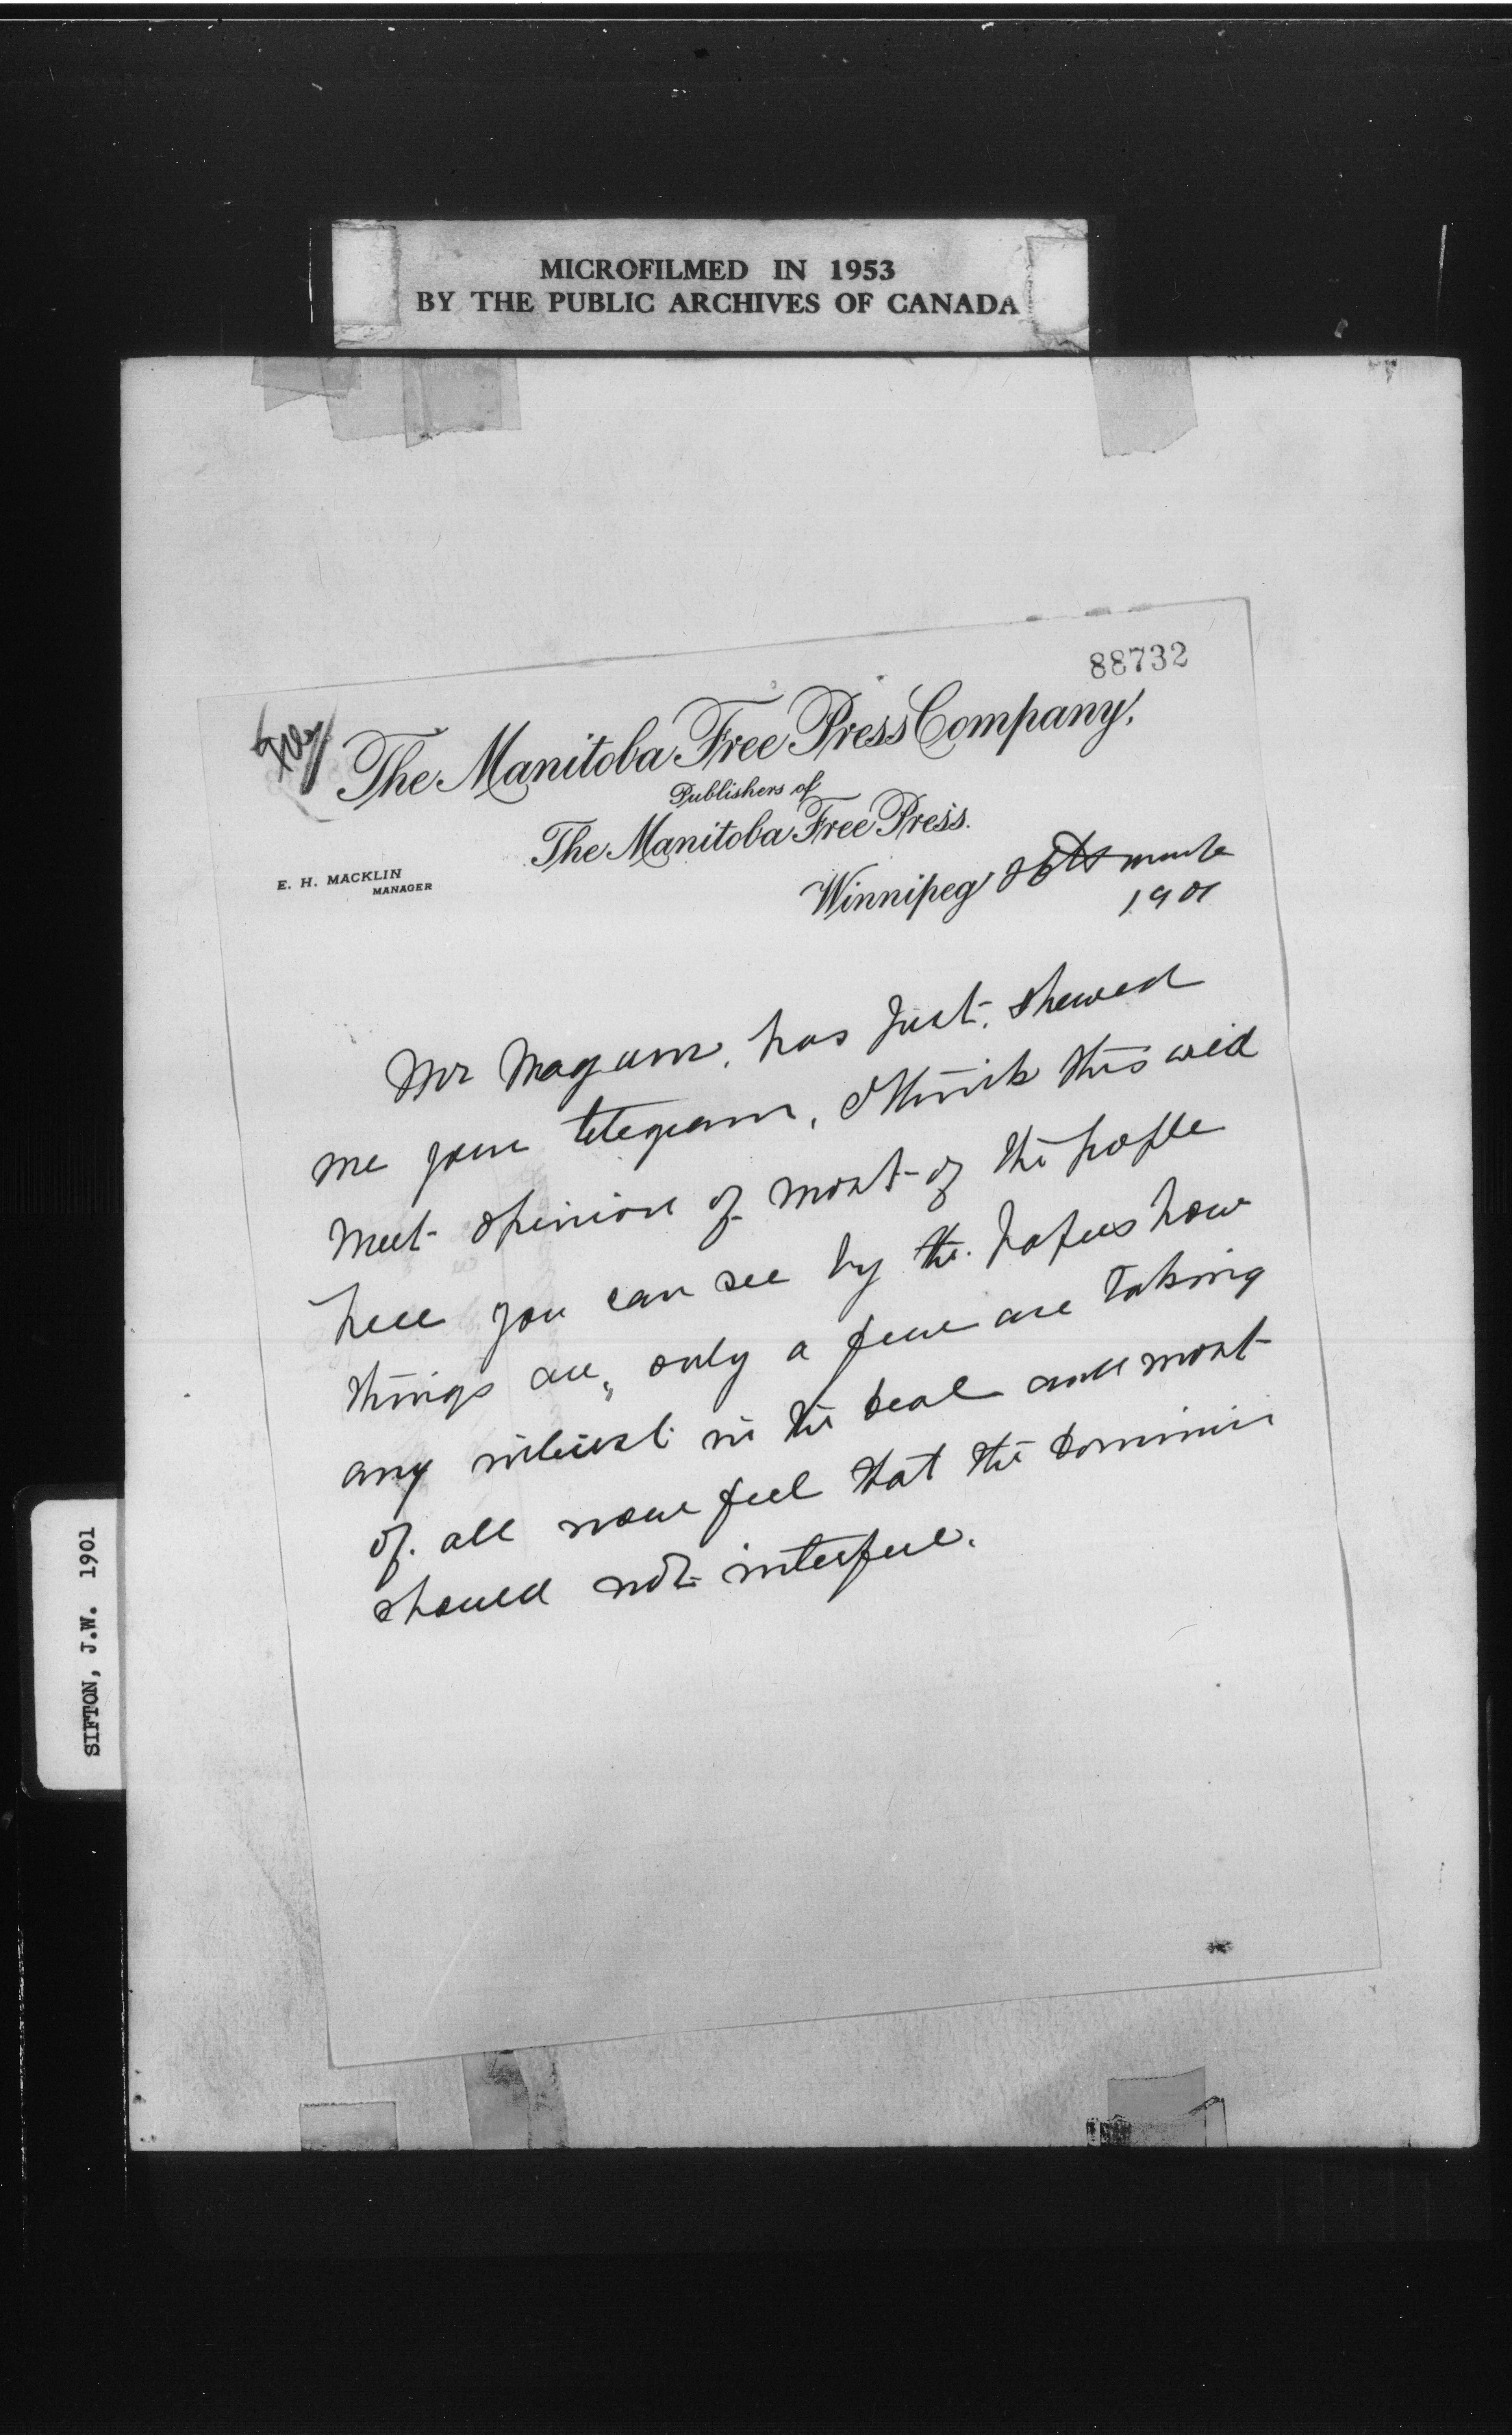 MICROFILMED IN 1953
BY THE PUBLIC ARCHIVES OF CANADA
88732
The Manitoba Free Press Company,
Publishers of
The Manitoba Free Press.
E. H. MACKLIN
MANAGER
Winnipeg 26th March
1901
Mr Magurn, has just, shewed
me your telegram, I think this will
meet opinion of most of the people
here you can see by the papers how
things are, only a few are taking
any interest in the deal and most
of all now feel that the Dominion
should not interfere.
SIFTON, J.W. 1901